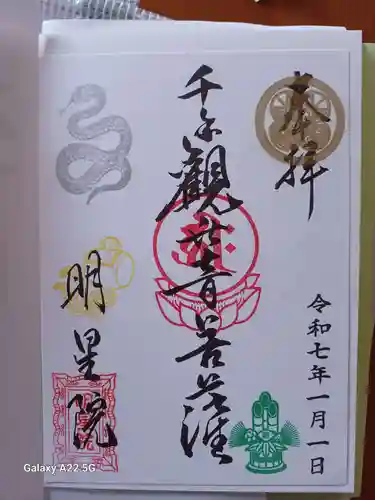 奉拝
令和七年一月一日
千手観世音菩薩
明星院
Galaxy A22 5G